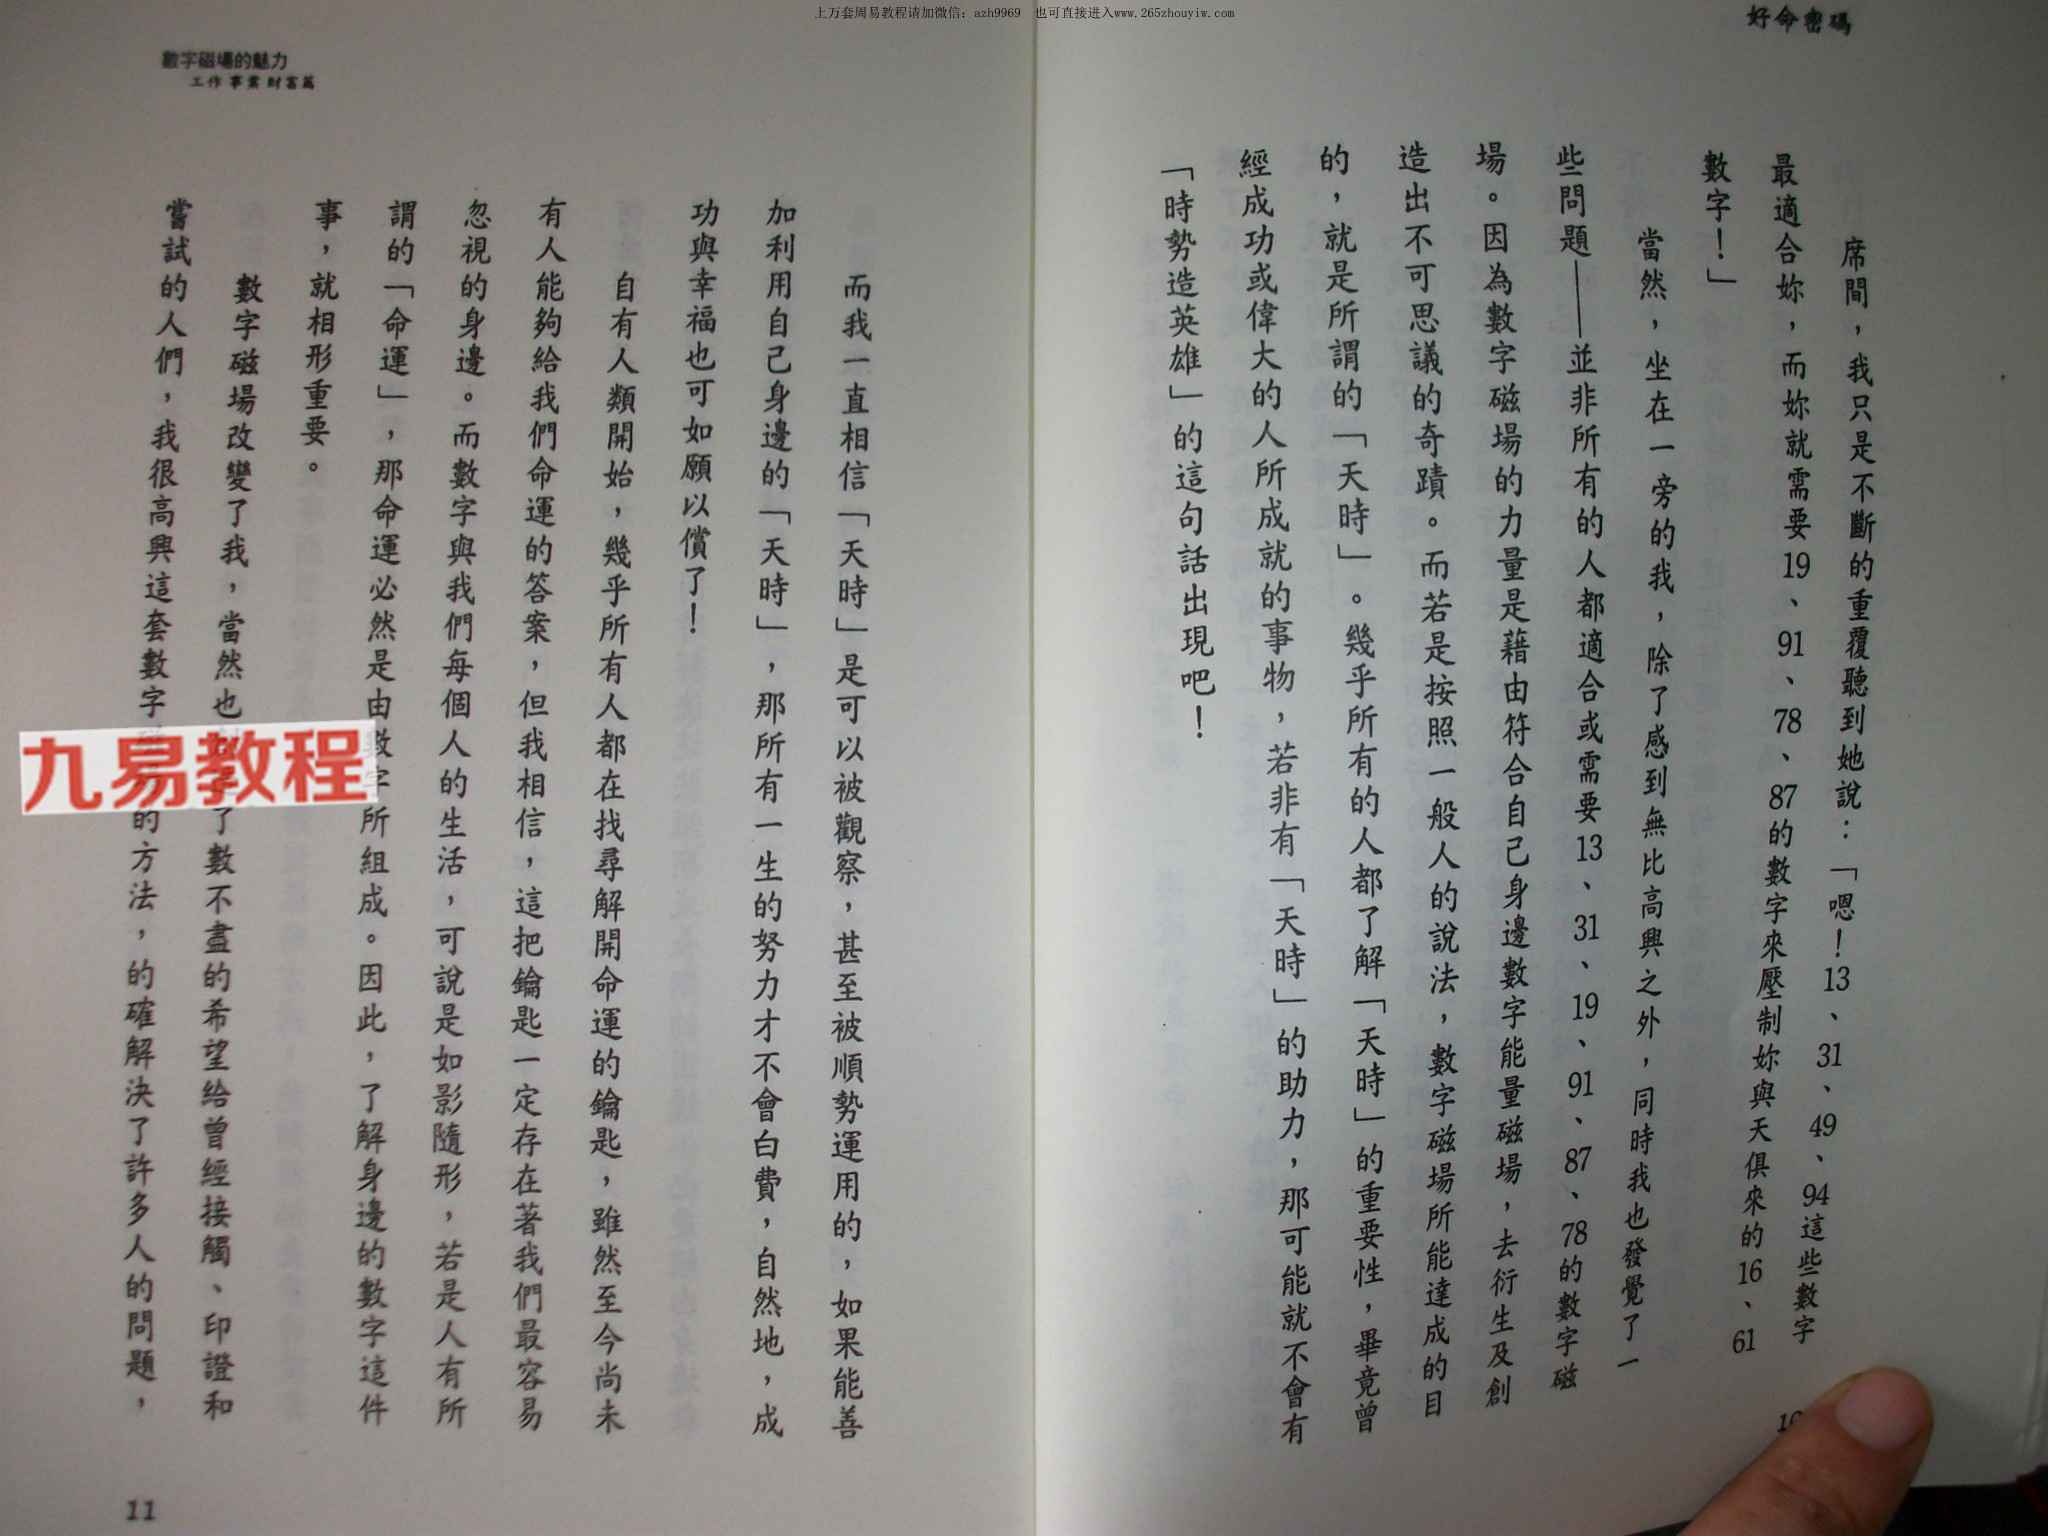 上万套周易教程请加微信：azh9969　也可直接进入www.265zhouyiw.com
好命密碼
席間，我只是不斷的重覆聽到她說：「嗯！13、31、49、94這些數字
最適合妳，而妳就需要19、91、78、87的數字來壓制妳與天俱來的16、61
數字！」
當然，坐在一旁的我，除了感到無比高興之外，同時我也發覺了一
些問題——並非所有的人都適合或需要13、31、19、91、87、78的數字磁
場。因為數字磁場的力量是藉由符合自己身邊數字能量磁場，去衍生及創
造出不可思議的奇蹟。而若是按照一般人的說法，數字磁場所能達成的目
的，就是所謂的「天時」。幾乎所有的人都了解「天時」的重要性，畢竟曾
經成功或偉大的人所成就的事物，若非有「天時」的助力，那可能就不會有
「時勢造英雄」的這句話出現吧！
數字磁場的魅力
工作 事業 財富篇
而我一直相信「天時」是可以被觀察，甚至被順勢運用的，如果能善
加利用自己身邊的「天時」，那所有一生的努力才不會白費，自然地，成
功與幸福也可如願以償了！
自有人類開始，幾乎所有人都在找尋解開命運的鑰匙，雖然至今尚未
有人能夠給我們命運的答案，但我相信，這把鑰匙一定存在著我們最容易
忽視的身邊。而數字與我們每個人的生活，可說是如影隨形，若是人有所
謂的「命運」，那命運必然是由數字所組成。因此，了解身邊的數字這件
事，就相形重要。
數字磁場改變了我，當然也了數不盡的希望給曾經接觸、印證和
嘗試的人們，我很高興這套數字的方法，的確解決了許多人的問題，
九易教程
11